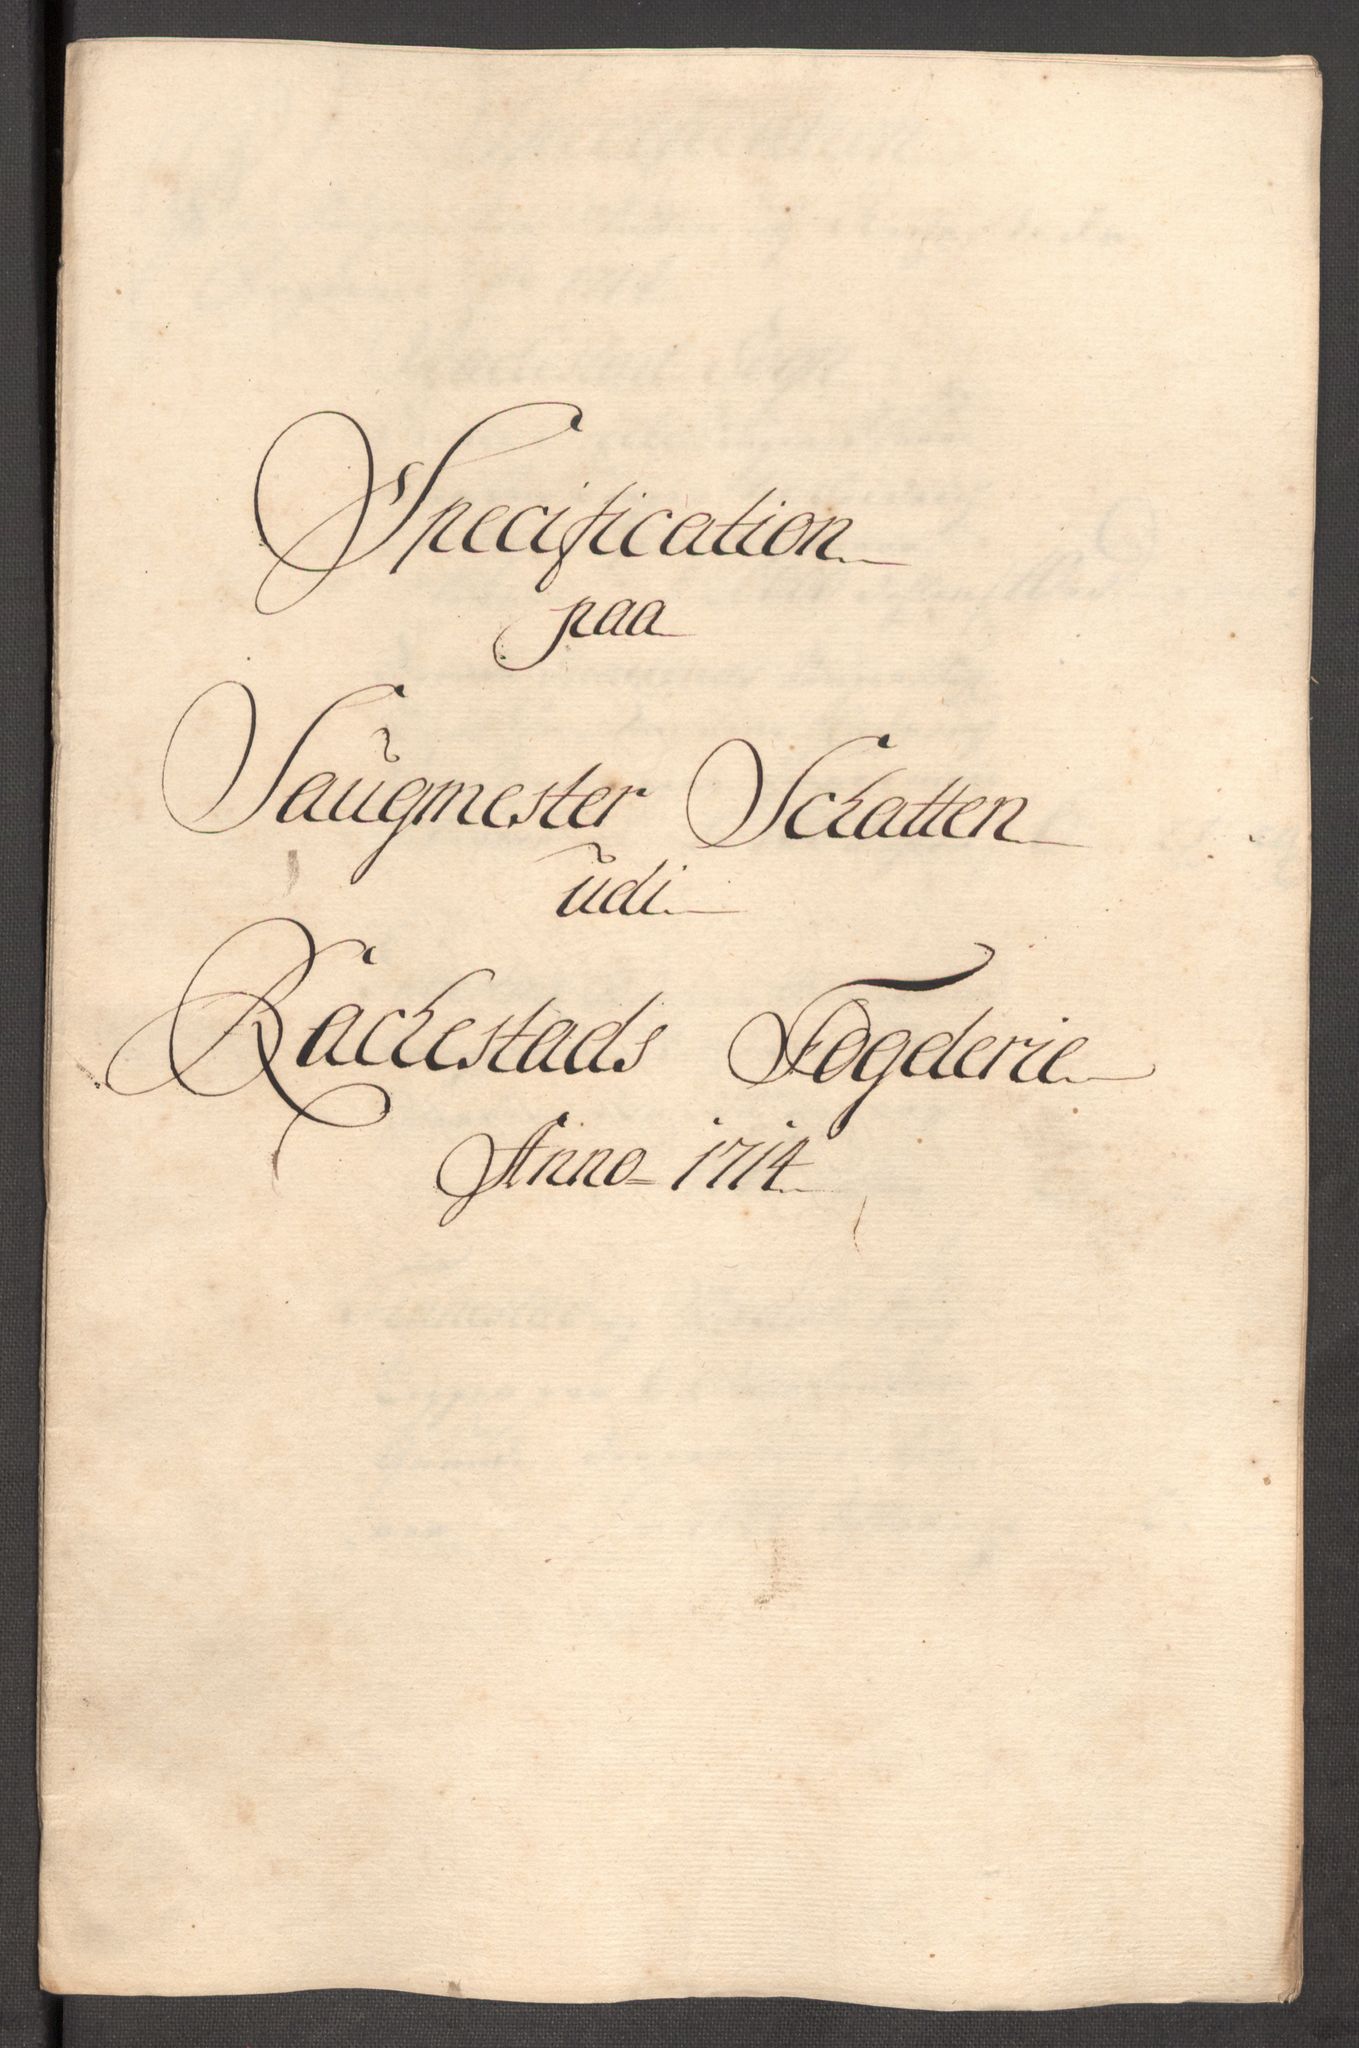 Specification
paa
Saugmester Schatten
udi
Rackestads Fogderie
Anno 1714